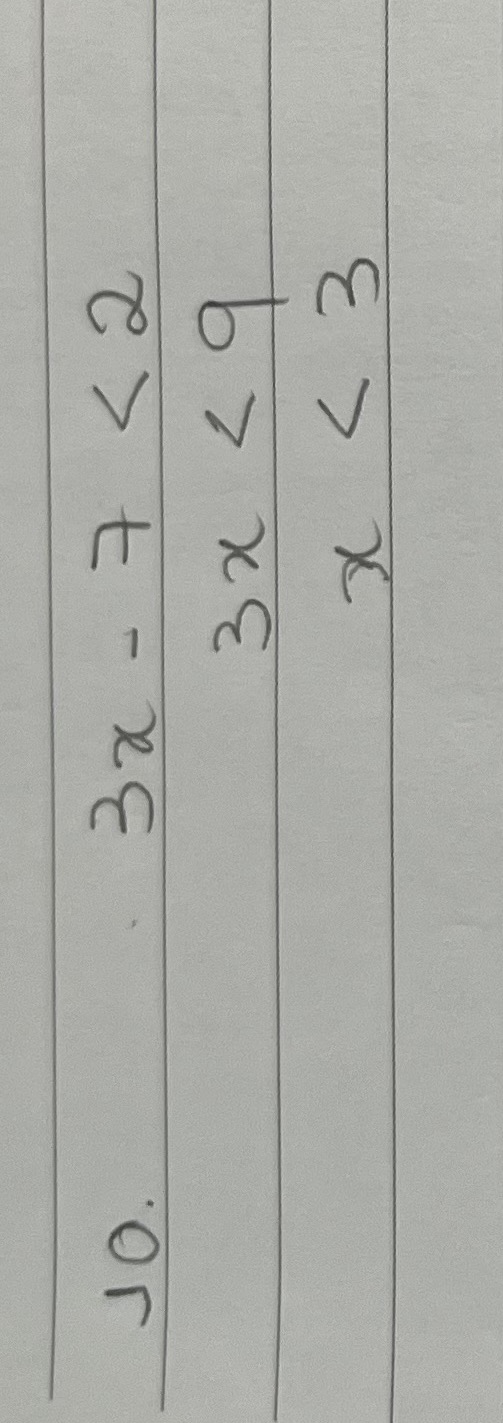 10. 3x - 7 < 2
3x < 9
x < 3